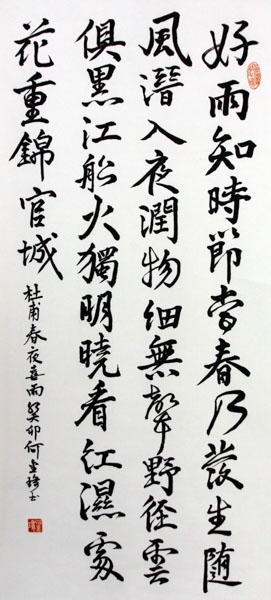 好雨知時節當春乃發生隨
風潛入夜潤物細無聲野徑雲
俱黑江船火獨明曉看紅濕處
花重錦官城
杜甫春夜喜雨癸卯何